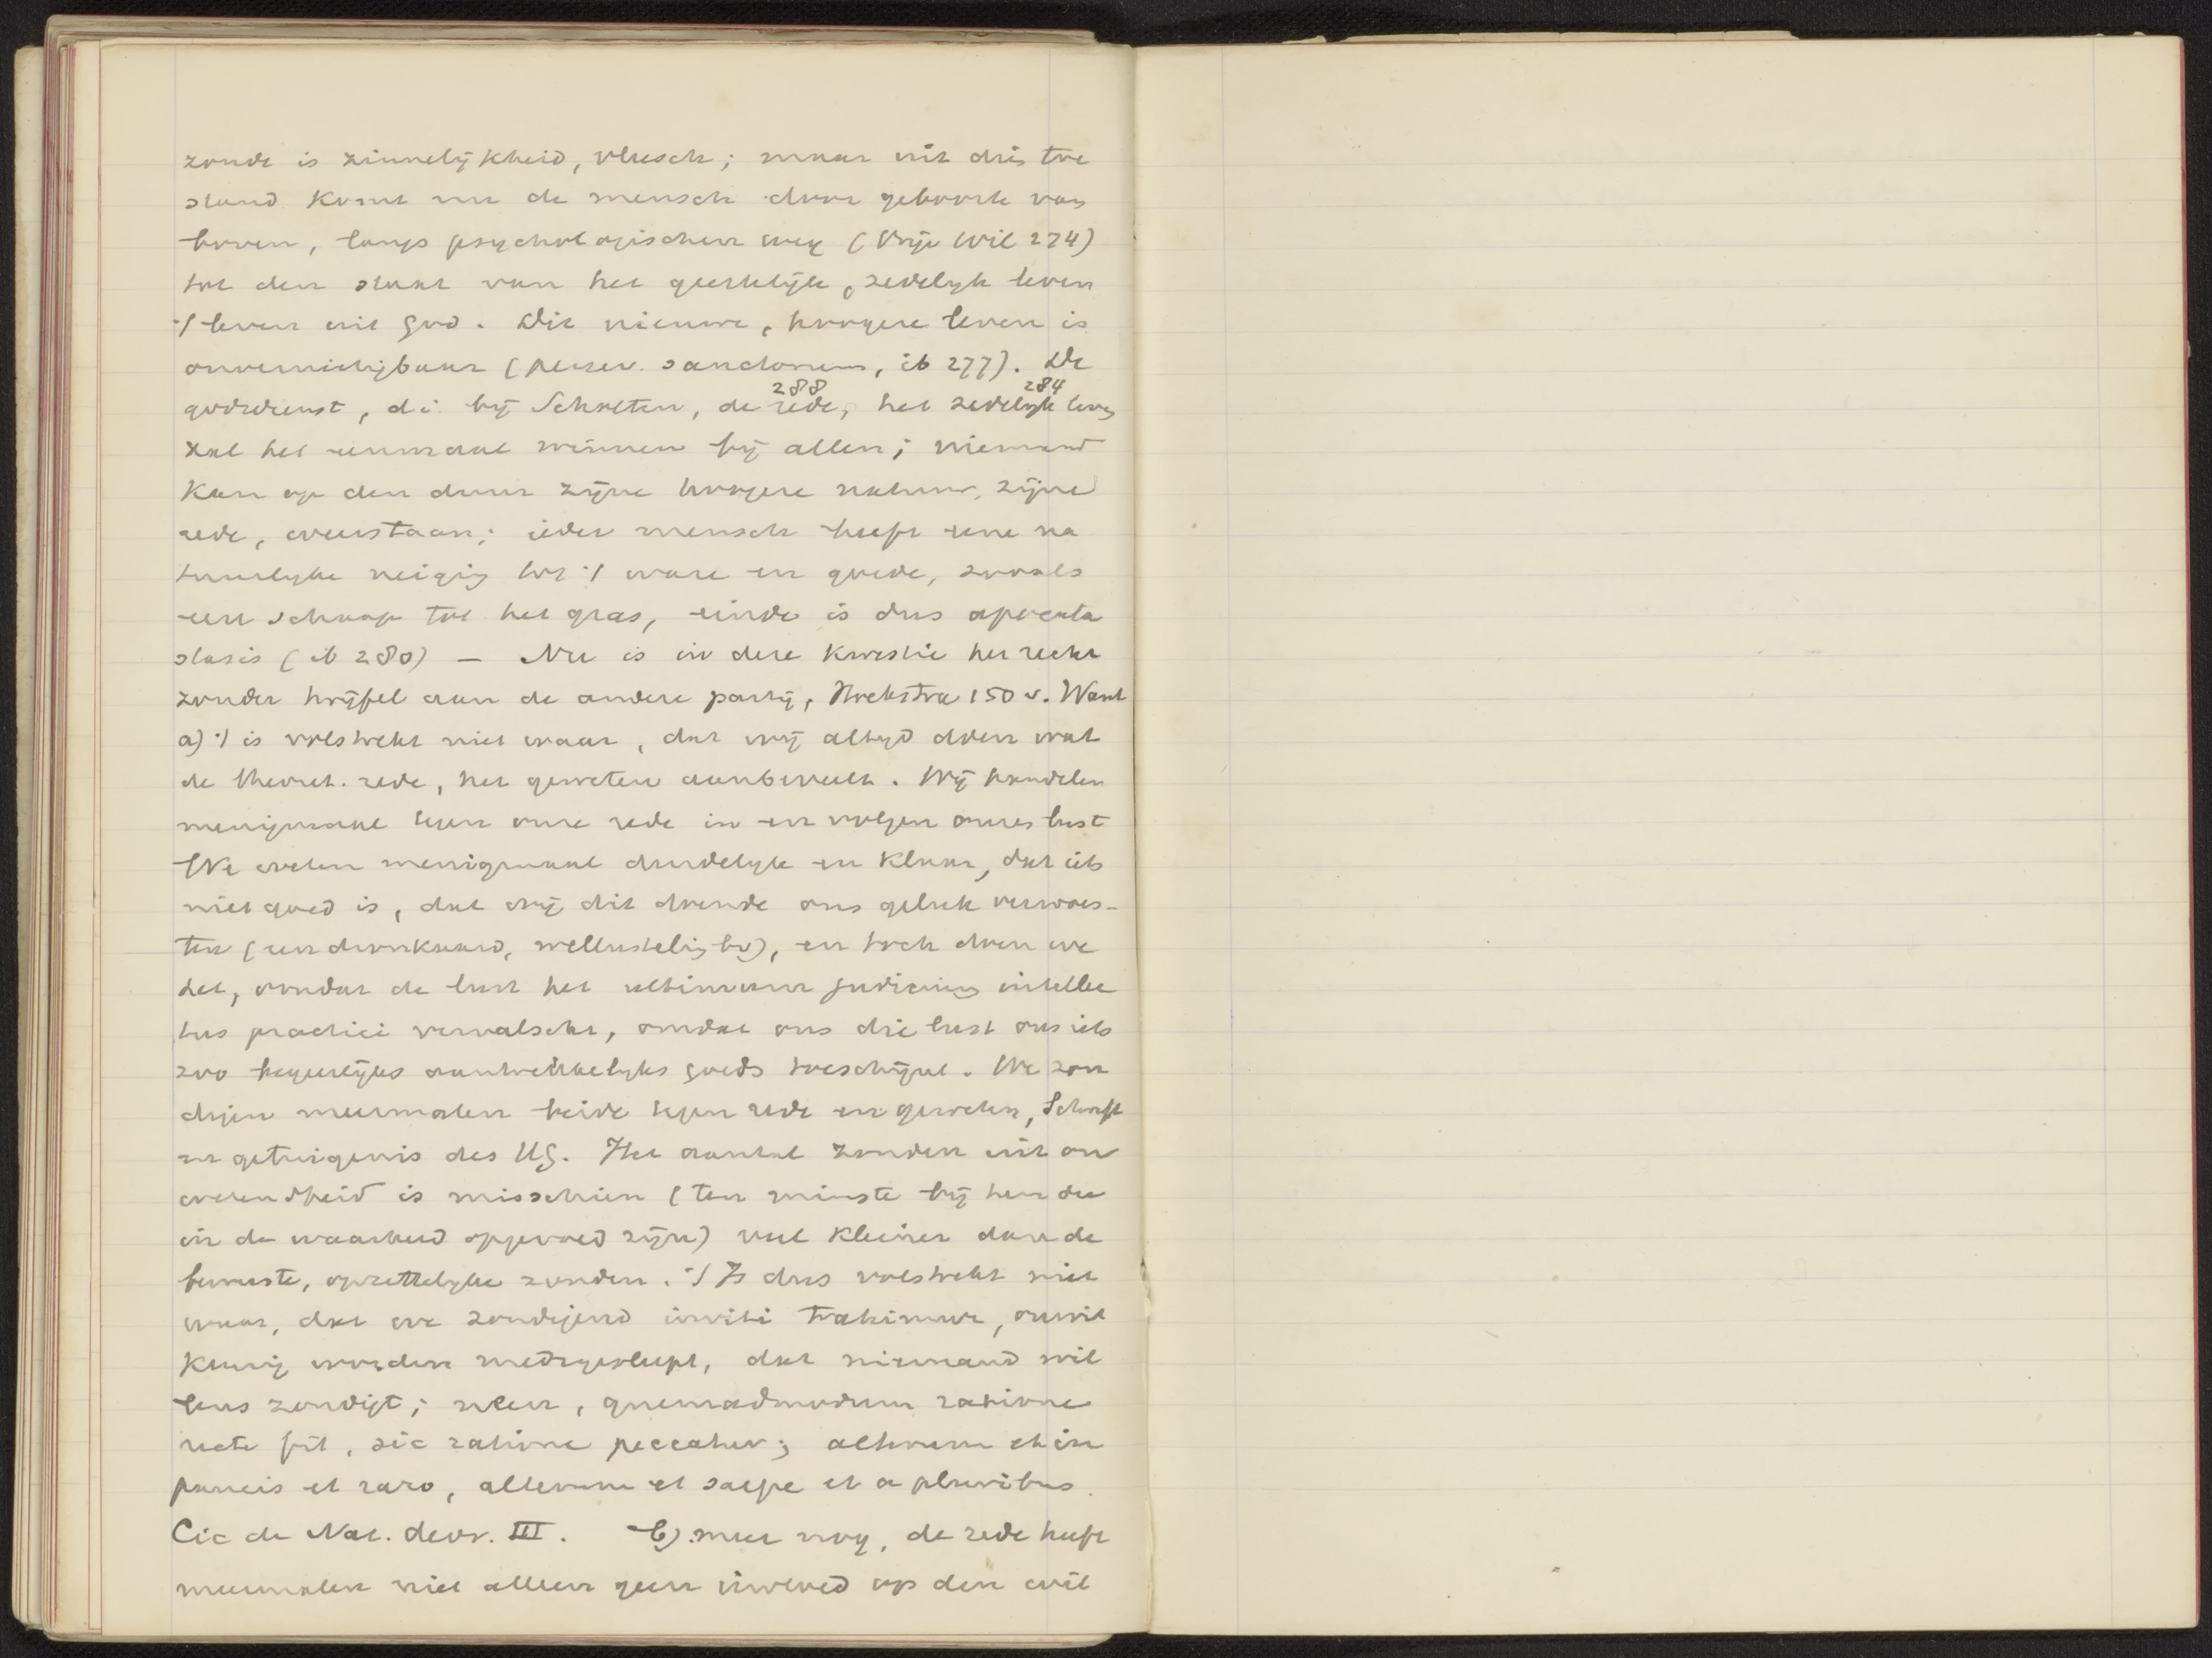 zonde is zinnelijkheid, vleesch; maar uit dris toe
stand komt nu de mensch door geboorte van
boven, langs psychologischen weg (Vrije Wil 274)
tot den staat van het geestelijke, zedelyk leven
't leven uit God. Dit nieuwe, hoogere leven is
onvernietigbaar (persev. sanctorum, ib 277). De
288 284
godsdienst, di. bij Scholten, de rede, het zedelyk leven
zal het eenmaal winnen bij allen; niemand
kan op den duur zijne hoogere natuur, zijne
rede, weerstaan; ieder mensch heeft eene na
tuurlyke neiging tot 't ware en goede, zooals
een schaap tot het gras, einde is dus apocata
stasis (ib 280) — Nu is in deze kwestie het recht
zonder twijfel aan de andere partij, Hoekstra 150 v. Want
a) 't is volstrekt niet waar, dat wij altyd doen wat
de theoret. rede, het geweten aanbeveelt. Wij handelen
menigmaal tegen onze rede in en volgen onzen lust
We weten menigmaal duidelyk en klaar, dat iets
niet goed is, dat wij dit doende ons geluk verwoes-
ten (een dronkaard, wellusteling bv), en toch doen we
het, omdat de lust het ultimum judicium intellec
tus practici vervalscht, omdat ons die lust ons iets
zoo begeerlijks aantrekkelyks goeds toeschijnt. We zon
digen meermalen beide tegen rede en geweten, Schrift
en getuigenis des HG. Het aantal zonden uit on
wetendheid is misschien (ten minste bij hen die
in de waarheid opgevoed zijn) veel kleiner dan de
bewuste, opzettelyke zonden. 't Is dus volstrekt niet
waar, dat we zondigend inviti trahimur, onwil
keurig worden medegesleept, dat niemand wil
lens zondigt; neen, quemadmodum ratione
recte fit, sic ratione peccatur; alterum et in
paucis et raro, alterum et saepe et a pluribus.
Cic de Nat. deor. III. b) meer nog, de rede heeft
meermalen niet alleen geen invloed op den wil